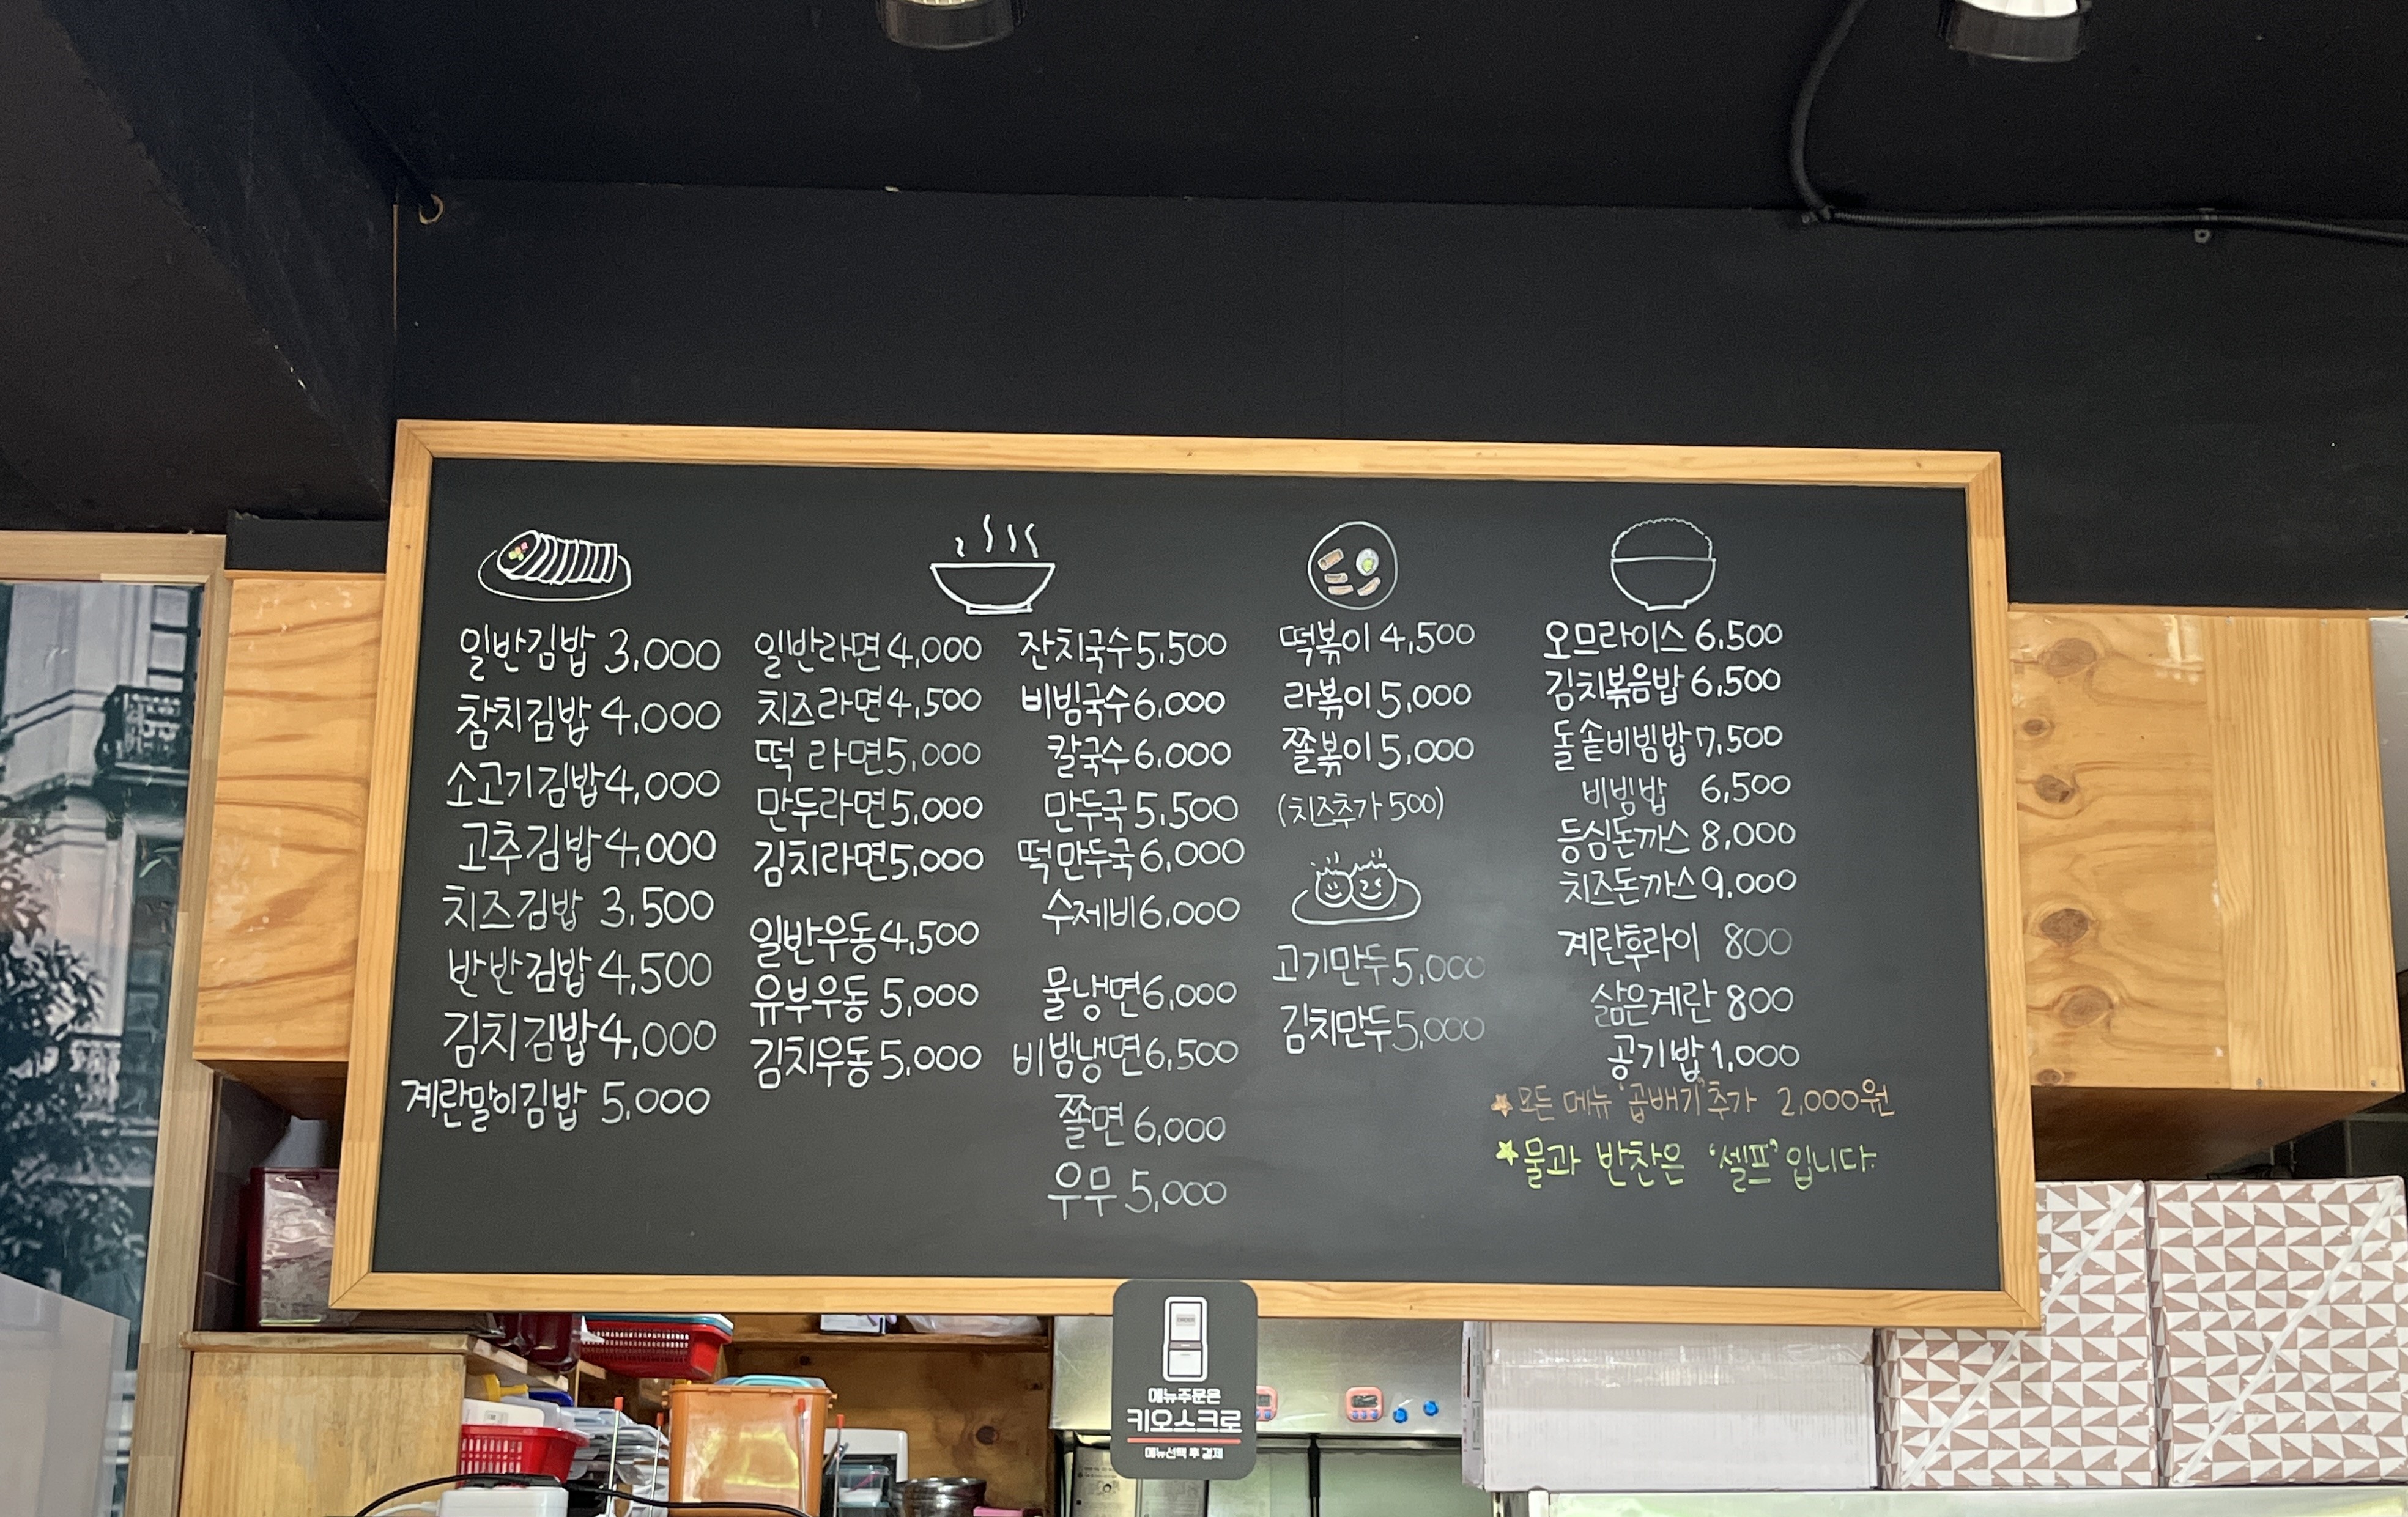 일반김밥 3,000
참치김밥 4,000
소고기김밥 4,000
고추김밥 4,000
치즈김밥 3,500
반반김밥 4,500
김치김밥 4,000
계란말이김밥 5,000
일반라면 4,000
치즈라면 4,500
떡 라면 5,000
만두라면 5,000
김치라면 5,000
일반우동 4,500
유부우동 5,000
김치우동 5,000
잔치국수 5,500
비빔국수 6,000
칼국수 6,000
만두국 5,500
떡만두국 6,000
수제비 6,000
물냉면 6,000
비빔냉면 6,500
쫄면 6,000
우무 5,000
떡볶이 4,500
라볶이 5,000
쫄볶이 5,000
(치즈추가 500)
고기만두 5,000
김치만두 5,000
오므라이스 6,500
김치볶음밥 6,500
돌솥비빔밥 7,500
비빔밥 6,500
등심돈까스 8,000
치즈돈까스 9,000
계란후라이 800
삶은계란 800
공기밥 1,000
★모든 메뉴 '곱배기' 추가 2,000원
★물과 반찬은 '셀프' 입니다.
메뉴주문은
키오스크로
메뉴선택 후 결제